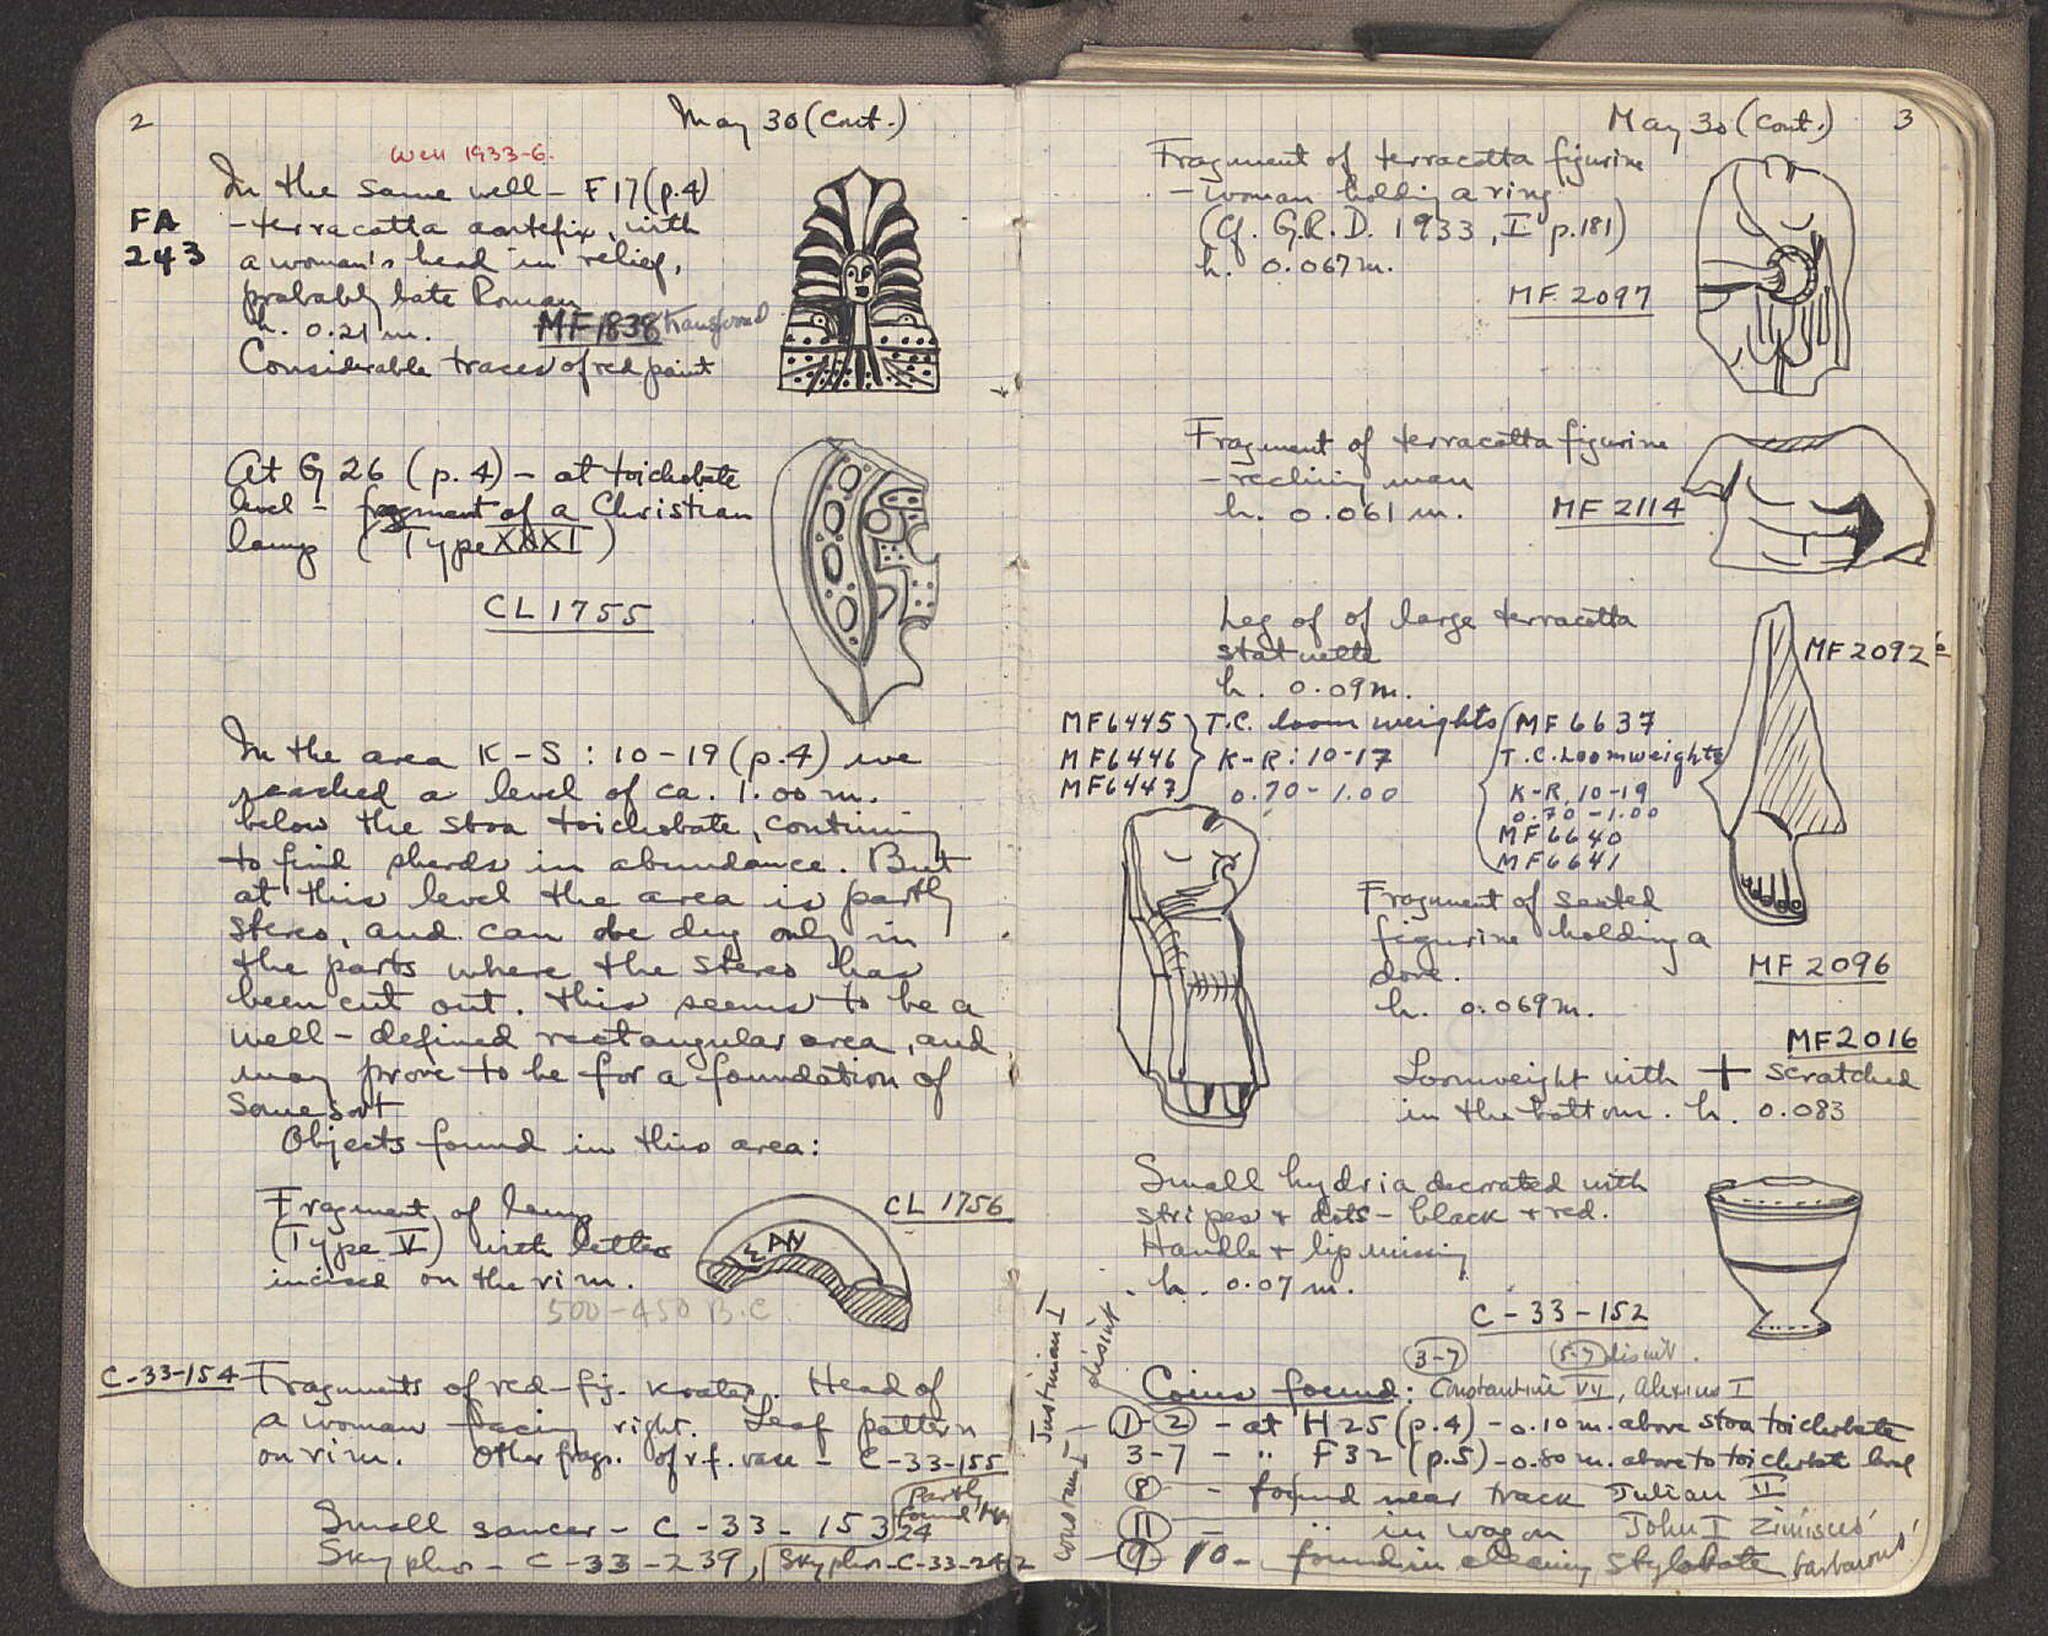 2
May 30 (Cont.)
Well 1933-6.
In the same well - F17 (p.4)
FA
243
- terracotta antefix, with
a woman's head in relief,
probably late Roman
h. 0.21 m. MF 1838 transferred
Considerable traces of red paint
At G 26 (p. 4) - at toichobate
level - fragment of a Christian
lamp (Type XXXI)
CL 1755
In the area K-S : 10-19 (p.4) we
reached a level of ca. 1.00 m.
below the stoa toichobate, continuing
to find sherds in abundance. But
at this level the area is partly
stereo, and can be dug only in
the parts where the stereo has
been cut out. This seems to be a
well-defined rectangular area, and
may prove to be for a foundation of
some sort
Objects found in this area:
Fragment of lamp
(Type V) with letters
incised on the rim.
CL 1756
500-450 B.C
C-33-154
Fragments of red-fig. krater. Head of
a woman facing right. Leaf pattern
on rim. Other frags. of r.f. vase - C-33-155
Small saucer - C-33-153
Partly
found
24
Skyphos - C-33-239, Skyphos-C-33-242
May 30 (Cont.)
3
Fragment of terracotta figurine
- woman holding a ring
(Cf. G.R.D. 1933, I p.181)
h. 0.067 m.
MF 2097
Fragment of terracotta figurine
- reclining man
h. 0.061 m.
MF 2114
Leg of of large terracotta
statuette
h. 0.09 m.
MF 2092
MF6445
MF6446
MF6447
T.C. loom weights
K-R: 10-17
0.70-1.00
MF 6637
T.C. Loomweights
K-R, 10-19
0.70-1.00
MF6640
MF6641
Fragment of seated
figurine holding a
dove.
h. 0.069 m.
MF 2096
MF2016
Loomweight with + scratched
in the bottom. h. 0.083
Small hydria decorated with
stripes + dots - black + red.
Handle + lip missing
h. 0.07 m.
C-33-152
3-7
5-7 disint.
Coins found: Constantine VII, Alexius I
1-2 - at H25 (p.4) - 0.10 m. above stoa toichobate
3-7 - " F32 (p.5) - 0.80 m. above to toichobate level
8 - found near track Julian II
11 - " in wagon John I Zimisces
9 10 - found in cleaning stylobate barbarous
Justinian I
disint
Constans I